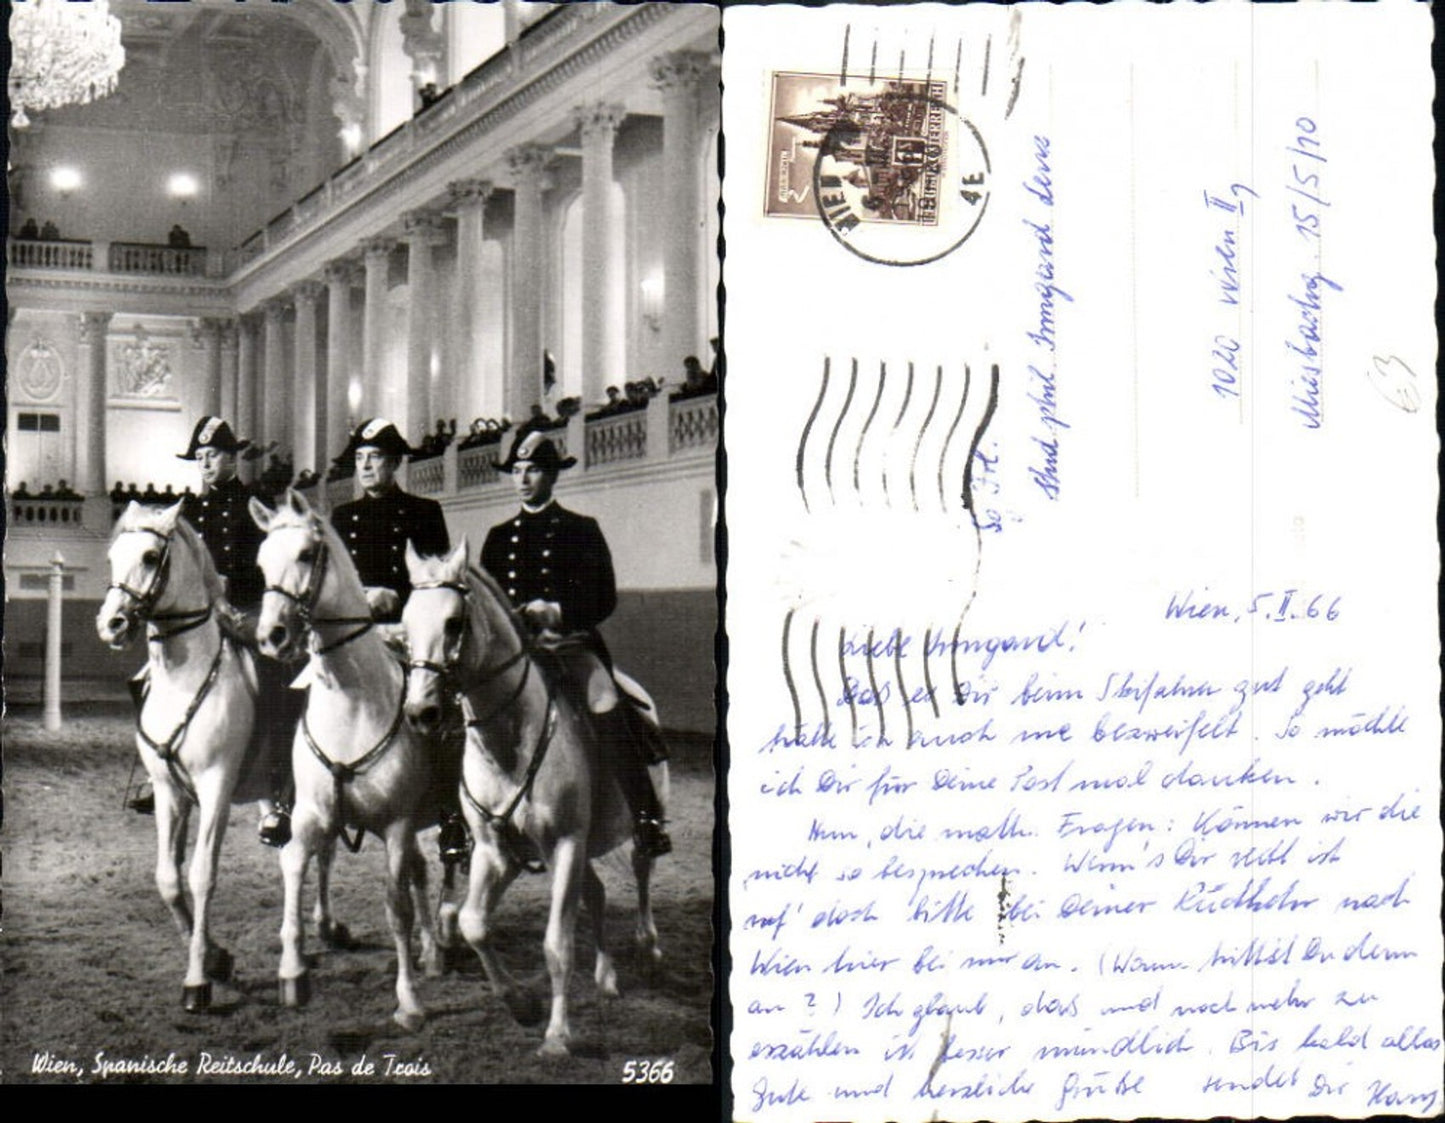 Wien, Spanische Reitschule, Pas de Trois
5366
WIEN
4E
ÖSTERREICH
So Frl.
stud. phil. Irmgard
1020 Wien II,
Miesbachg. 15/5/10
63
Wien, 5.II.66
Liebe Irmgard!
Daß es Dir beim Skifahren gut geht
hätte ich auch nie bezweifelt. So möchte
ich Dir für Deine Post mal danken.
Nun, die math. Fragen: Können wir die
nicht so besprechen. Wenn's Dir recht ist
ruf' doch bitte bei Deiner Rückkehr nach
Wien hier bei mir an. (Wann trittst Du denn
an?) Ich glaub, das und noch mehr zu
erzählen ist besser mündlich. Bis bald alles
Gute und herzliche Grüße sendet Dir Hans